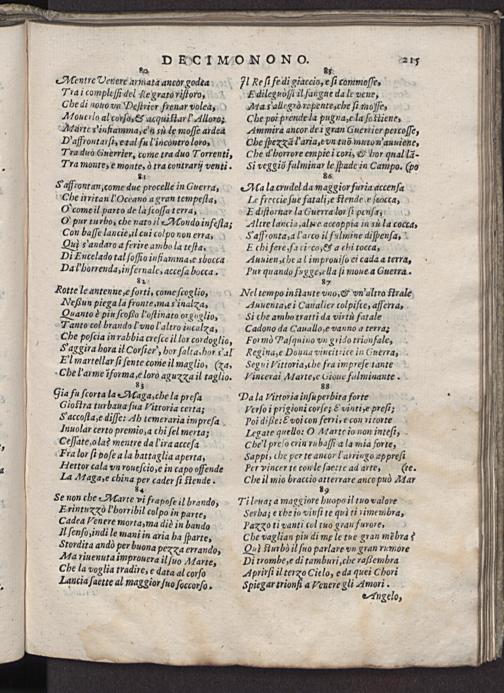 DECIMONONO. 215
80.
Mentre Venere armata ancor godea
Tra i complessi del Regrato ristoro,
Che di nouo un' Destrier frenar volea,
Mouerlo al corso, & acquistar l'Alloro;
Marte s'infiamma, e'n sù le mosse ardea
D'affrontarsi, e tal fu l'incontro loro,
Tra duo Guerrier, come tra duo Torrenti,
Tra monte, e monte, ò tra contrarij venti.
81.
S'affrontan, come due procelle in Guerra,
Che irritan l'Oceano a gran tempesta,
O come il parto de la scossa terra,
O pur turbo, che nato il Mondo infesta;
Con basse lancie, il cui colpo non erra,
Quì s'andaro a ferire ambo la testa,
Di Encelado tal soffio infiamma, e sbocca
Da l'horrenda, infernale, accesa bocca.
82.
Rotte le antenne, e forti, come scoglio,
Nessun piega la fronte, ma s'inalza,
Quanto è piu scosso l'ostinato orgoglio,
Tanto col brando l'vno l'altro incalza,
Che poscia in rabbia cresce il lor cordoglio,
S'aggira hora il Corsier, hor salta, hor s'al
E'l martellar si sente come il maglio, (za,
Che l'arme isforma, e loro aguzza il taglio.
83.
Gia fu scorta la Maga, che la presa
Giostra turbaua sua Vittoria certa;
S'accosta, e disse: Ah temeraria impresa
Inuolar certo premio, a chi sel merta;
Cessate, ola: mentre da l'ira accesa
Fra lor si pose a la battaglia aperta,
Hettor cala vn rouescio, e in capo offende
La Maga, e china per cader si stende.
84.
Se non che Marte vi frapose il brando,
E rintuzzò l'horribil colpo in parte,
Cadea Venere morta, ma diè in bando
Il senso, indi le mani in aria ha sparte,
Stordita andò per buona pezza errando,
Ma riuenuta improuera il suo Marte,
Che la voglia tradire, e data al corso
Lancia saette al maggior suo soccorso.
85.
Il Re si fe di giaccio, e si commosse,
E dileguossi il sangue da le vene,
Ma s'allegrò repente, che si mosse,
Che poi prende la pugna, e la sostiene,
Ammira ancor de i gran Guerrier percosse,
Che spezzã l'aria, vn tuõ muto n'auuiene,
Che d'horrore empie i cori, & hor qual lã-
Si veggiò fulminar le spade in Campo. (po
86.
Ma la crudel da maggior furia accensa
Le freccie sue fatali, e stende, e scocca,
E distornar la Guerra lor si pensa;
Altre lancia, altre accoppia in sù la cocca,
S'affronta, a l'arco il fulmine dispensa,
E chi fere, fa cieco, & a chi tocca,
Auuien, che a l'improuiso ei cada a terra,
Pur quando fugge, ella si moue a Guerra.
87.
Nel tempo instante vno, & vn'altro strale
Auuenta, e i Caualier colpisce, afferra,
Si che ambo tratti da virtù fatale
Cadono da Cauallo, e vanno a terra;
Formò Pasquino vn grido trionfale,
Regina, e Donna vincitrice in Guerra,
Segui Vittoria, che fra imprese tante
Vincerai Marte, e Gioue fulminante.
88.
Da la Vittoria insuperbita forte
Verso i prigioni corse; E vinti, e presi;
Poi disse: E voi con ferri, e con ritorte
Legate quello: O Marte io non intesi,
Che'l preso crin rubassi a la mia forte,
Sappi, che per te ancor l'arringo appresi
Per vincer te con le saette ad arte, (te.
Che il mio braccio atterrare anco può Mar
89.
Ti leua; a maggiore huopo il tuo valore
Serba; e che io vinsi te quà ti rimembra,
Pazzo ti vanti col tuo gran furore,
Che vaglian piu di me le tue gran mẽbra?
Quì sturbò il suo parlare vn gran rumore
Di trombe, e di tamburi, che rassembra
Aprirsi il terzo Cielo, e da quei Chori
Spiegar trionfi a Venere gli Amori.
Angelo,